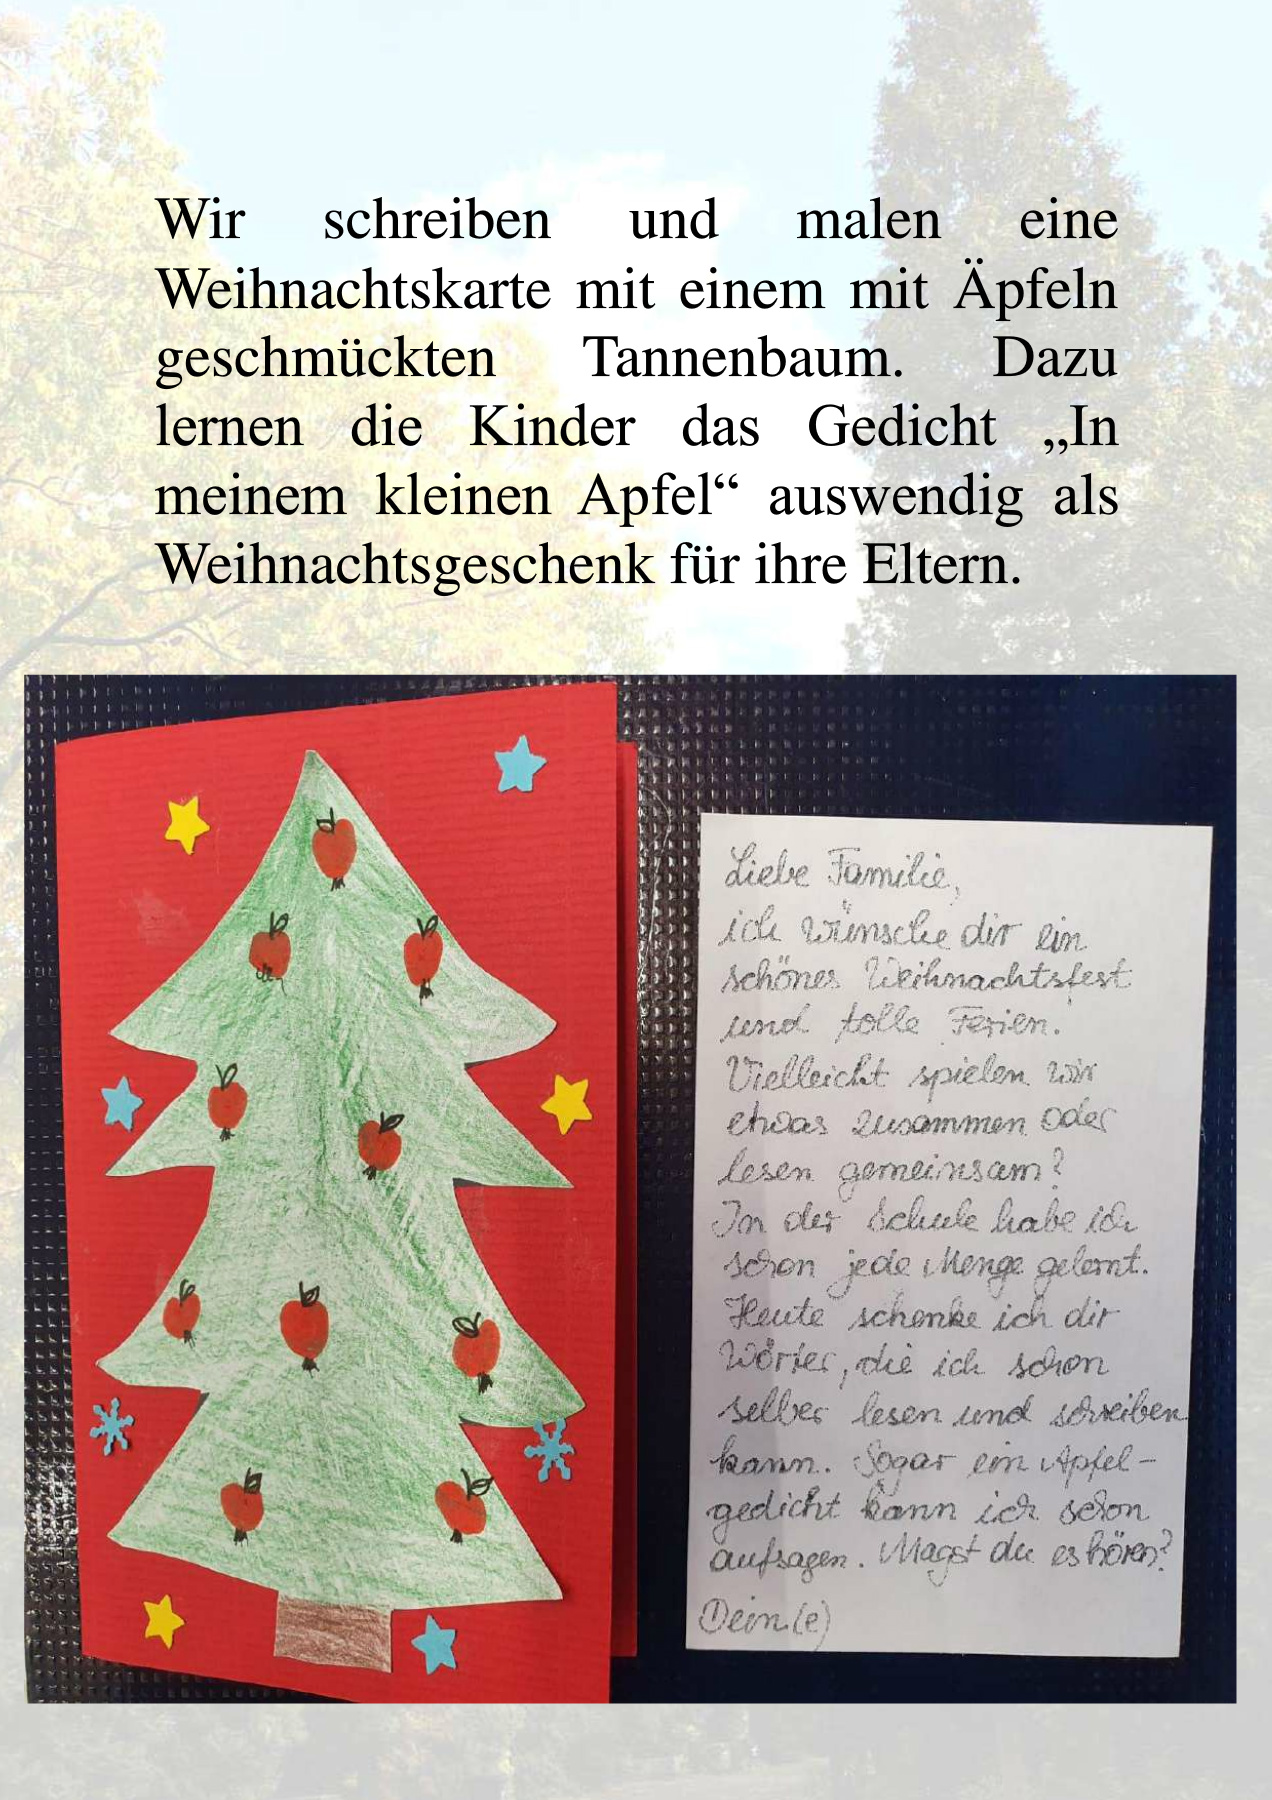 Wir schreiben und malen eine
Weihnachtskarte mit einem mit Äpfeln
geschmückten Tannenbaum. Dazu
lernen die Kinder das Gedicht „In
meinem kleinen Apfel“ auswendig als
Weihnachtsgeschenk für ihre Eltern.
Liebe Familie,
ich wünsche dir ein
schönes Weihnachtsfest
und tolle Ferien.
Vielleicht spielen wir
etwas zusammen oder
lesen gemeinsam?
In der Schule habe ich
schon jede Menge gelernt.
Heute schenke ich dir
Wörter, die ich schon
selber lesen und schreiben
kann. Sogar ein Apfel-
gedicht kann ich schon
aufsagen. Magst du es hören?
Dein(e)